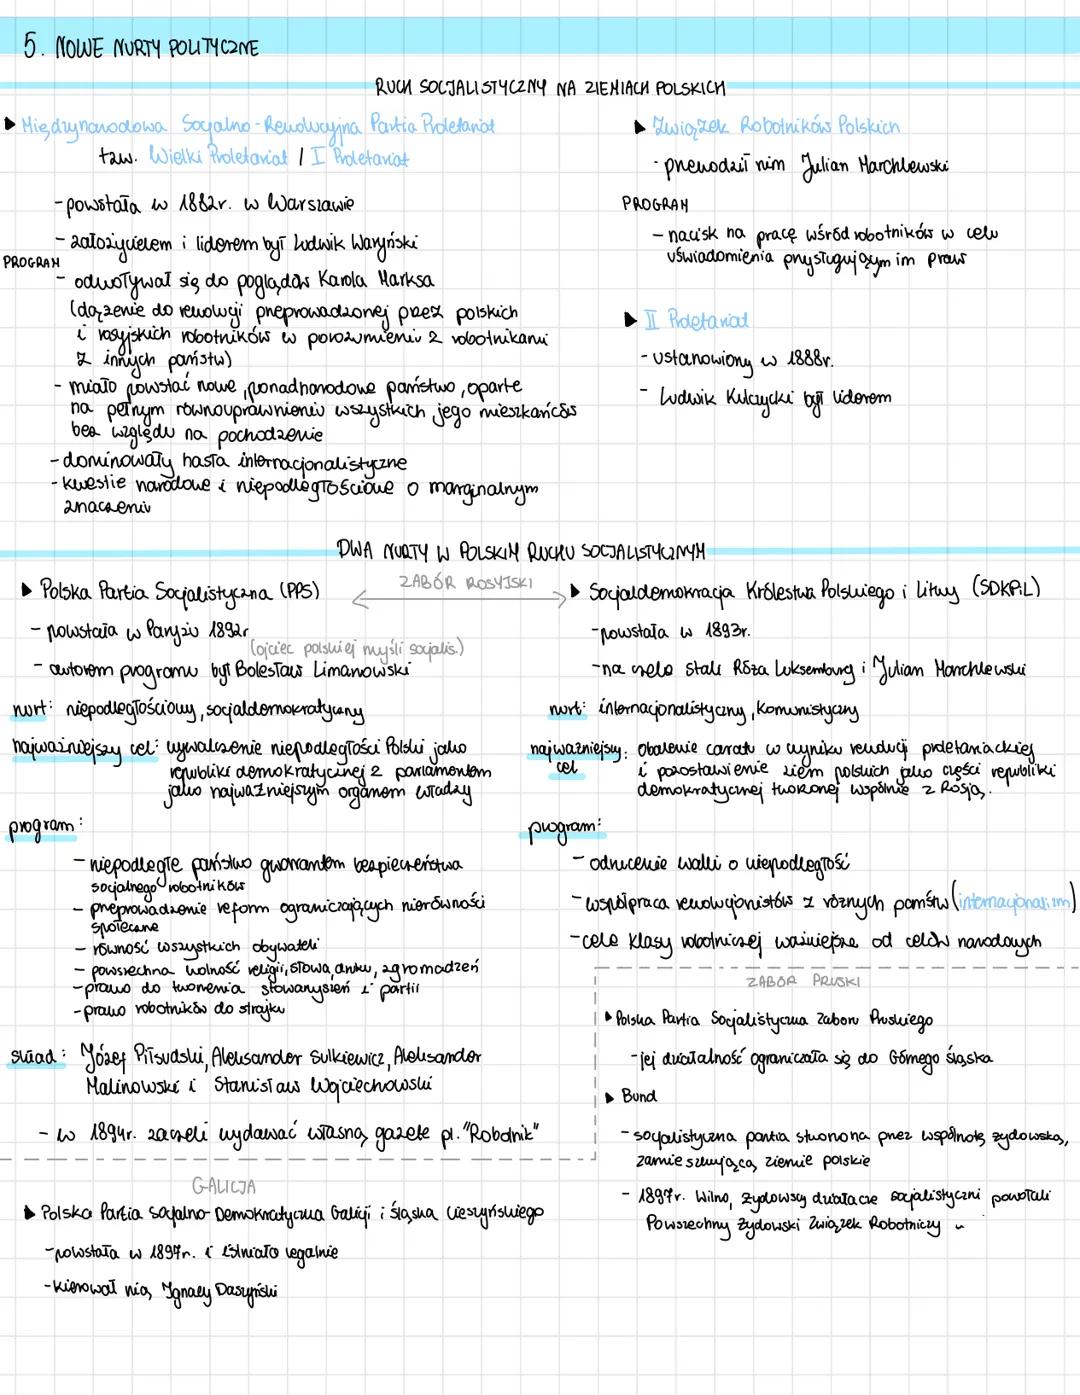 5. NOWE NURTY POLITYCZNE
RUCH SOCJALISTYCZNY NA ZIEMIACH POLSKICH
▶ Międzynarodowa Socjalno-Rewolucyjna Partia Proletariat
tzw. Wielki Proletariat / I Proletariat
- powstała w 1882r. w Warszawie
- założycielem i liderem był Ludwik Waryński
PROGRAM
- odwoływał się do poglądów Karola Marksa
(dążenie do rewolucji przeprowadzonej przez polskich
i rosyjskich robotników w porozumieniu z robotnikami
z innych państw)
- miało powstać nowe, ponadnarodowe państwo, oparte
na pełnym równouprawnieniu wszystkich jego mieszkańców
bez względu na pochodzenie
- dominowały hasła internacjonalistyczne
- kwestie narodowe i niepodległościowe o marginalnym
znaczeniu
▶ Związek Robotników Polskich
· przewodził nim Julian Marchlewski
PROGRAM
- nacisk na pracę wśród robotników w celu
uświadomienia przysługującym im praw
▶ II Proletariat
- ustanowiony w 1888r.
- Ludwik Kulczycki był liderem
DWA NURTY W POLSKIM RUCHU SOCJALISTYCZNYM
ZABÓR ROSYJSKI
▶ Polska Partia Socjalistyczna (PPS)
- powstała w Paryżu 1892r
(ojciec polskiej myśli socjalis.)
- autorem programu był Bolesław Limanowski
nurt: niepodległościowy, socjaldemokratyczny
najważniejszy cel: wywalczenie niepodległości Polski jako
republiki demokratycznej z parlamentem
jako najważniejszym organem władzy
program:
- niepodległe państwo gwarantem bezpieczeństwa
socjalnego robotników
- przeprowadzenie reform ograniczających nierówności
społeczne
- równość wszystkich obywateli
- powszechna wolność religii, słowa, druku, zgromadzeń
- prawo do tworzenia stowarzyszeń i partii
- prawo robotników do strajku
skład: Józef Piłsudski, Aleksander Sulkiewicz, Aleksander
Malinowski i Stanisław Wojciechowski
- w 1894r. zaczeli wydawać własną gazete pt. "Robotnik"
▶ Socjaldemokracja Królestwa Polskiego i Litwy (SDKPiL)
- powstała w 1893r.
- na czele stali Róża Luksemburg i Julian Marchlewski
nurt: internacjonalistyczny, komunistyczny
najważniejszy cel: Obalenie caratu w wyniku rewolucji proletariackiej
i pozostawienie ziem polskich jako części republiki
demokratycznej tworzonej wspólnie z Rosją.
program:
- odrzucenie walki o niepodległość
- współpraca rewolucjonistów z różnych państw (internacjonalizm)
- cele klasy robotniczej ważniejsze od celów narodowych
ZABÓR PRUSKI
▶ Polska Partia Socjalistyczna Zaboru Pruskiego
- jej działalność ograniczała się do Górnego Śląska
▶ Bund
- socjalistyczna partia stworzona przez wspólnotę żydowską,
zamieszkującą ziemie polskie
- 1897r. Wilno, żydowscy działacze socjalistyczni powołali
Powszechny Żydowski Związek Robotniczy
GALICJA
▶ Polska Partia Socjalno-Demokratyczna Galicji i Śląska Cieszyńskiego
- powstała w 1897r. i istniało legalnie
- kierował nią Ignacy Daszyński